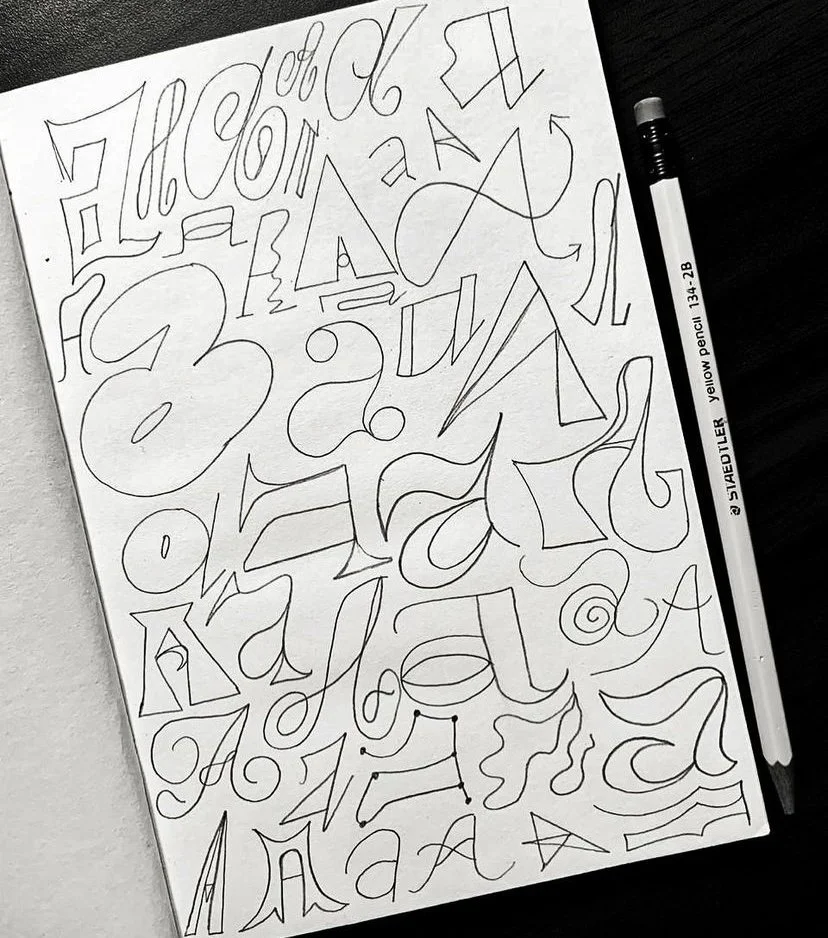 a A a a a a a
a A A A a A a A
A a a a a A A
a a a A
A a A a a A
A A a a A a
A A a a A a
STAEDTLER yellow pencil 134-2B